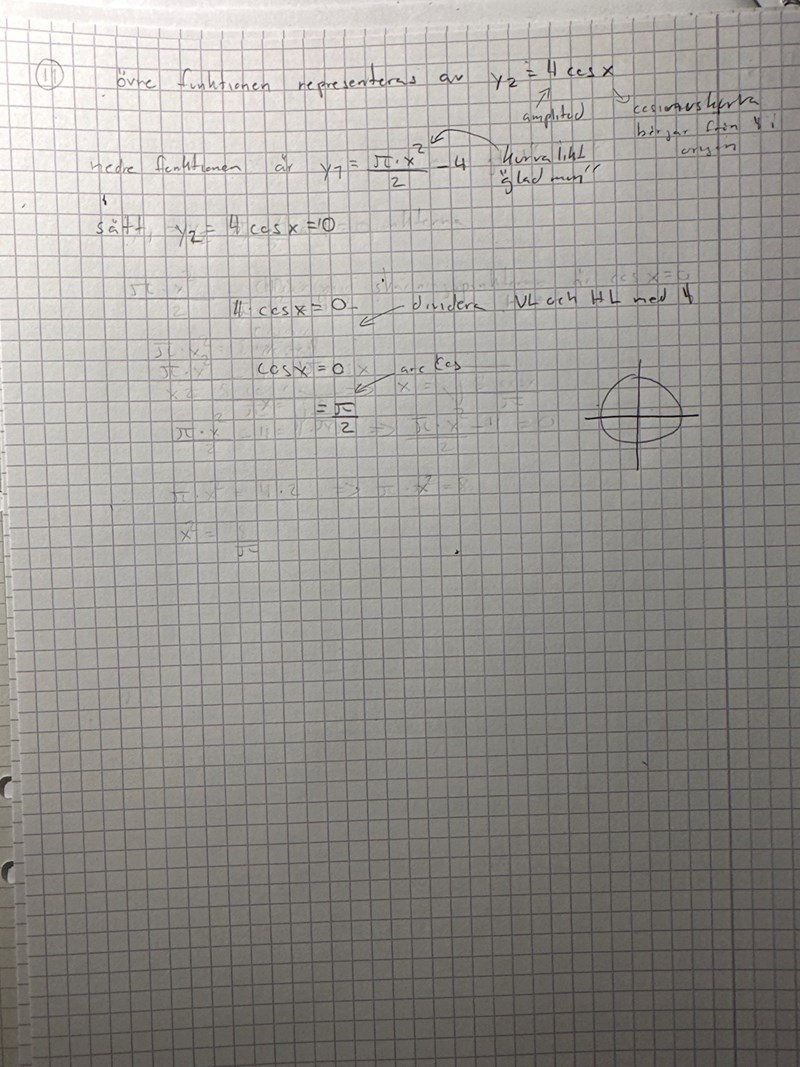 11 övre funktionen representeras av y2 = 4 cos x
amplitud
cosinuskurva
börjar från 4 i
origo
nedre funktionen är y1 = π·x²/2 - 4 kurva likt
"glad mun"
sätt, y2 = 4 cos x = 0
4 cos x = 0 dividera VL och HL med 4
cos x = 0 arc cos
= π/2
π·x²/2 - 4 = 0
π·x² = 4·2 => π·x² = 8
x² = 8/π